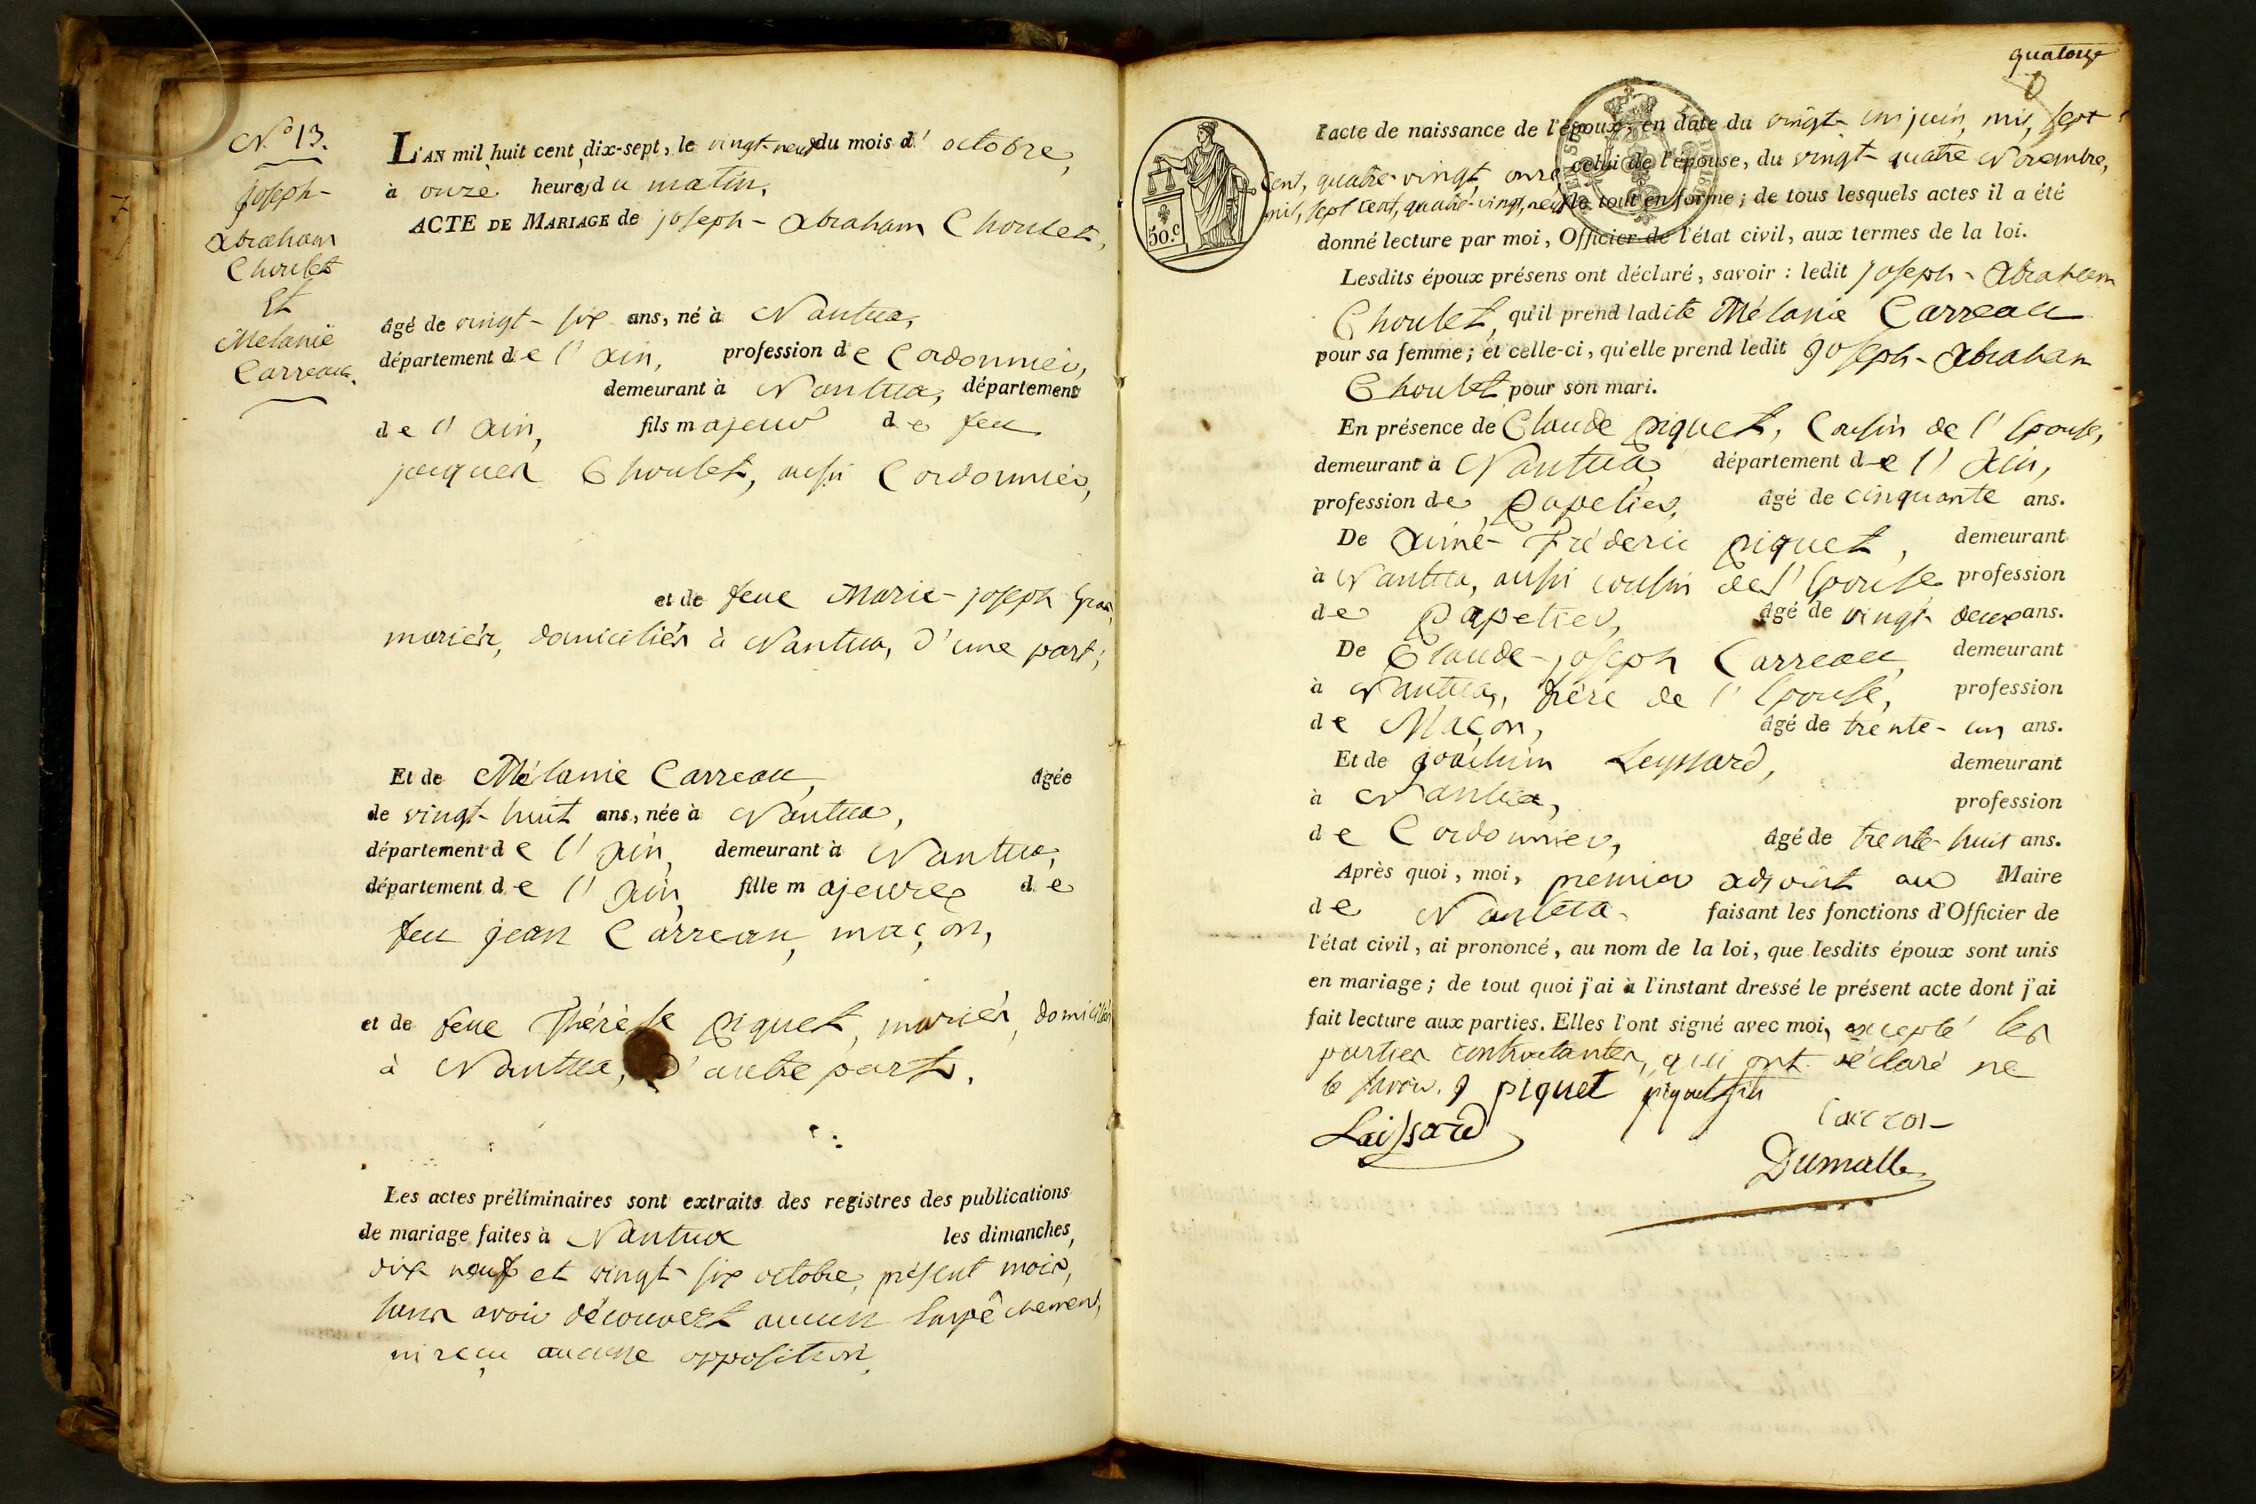 N.º 13.
joseph-
abraham
Choulet
Et
Mélanie
Carreau.
L'AN mil huit cent dix-sept, le vingt-neuf du mois d'octobre,
à onze heures du matin,
ACTE DE MARIAGE de joseph-abraham Choulet,
âgé de vingt-six ans, né à Nantua,
département de l'ain, profession de Cordonnier,
demeurant à Nantua, département
de l'ain, fils majeur de feu
jacques Choulet, aussi Cordonnier,
et de feue Marie-joseph
mariés, domiciliés à Nantua, d'une part;
Et de Mélanie Carreau, âgée
de vingt-huit ans, née à Nantua,
département de l'ain, demeurant à Nantua,
département de l'ain, fille majeure de
feu jean Carreau, maçon,
et de feue Thérèse piquet, mariés, domiciliés
à Nantua, d'autre part.
Les actes préliminaires sont extraits des registres des publications
de mariage faites à Nantua les dimanches,
dix neuf et vingt-six octobre, présent mois,
sans avoir découvert aucun Empêchement,
ni reçu aucune opposition,
quatorze
l'acte de naissance de l'époux, en date du vingt-un juin, mil, sept
Cent, quatre-vingt, onze celui de l'épouse, du vingt-quatre Novembre,
mil, sept cent, quatre-vingt, neuf le tout en forme; de tous lesquels actes il a été
50.c
donné lecture par moi, Officier de l'état civil, aux termes de la loi.
Lesdits époux présens ont déclaré, savoir: ledit joseph-abraham
Choulet, qu'il prend ladite Mélanie Carreau
pour sa femme; et celle-ci, qu'elle prend ledit joseph-abraham
Choulet pour son mari.
En présence de Claude piquet, Cousin de l'Epouse,
demeurant à Nantua, département de l'ain,
profession de Papetier, âgé de cinquante ans.
De aimé-Fréderic piquet, demeurant
à Nantua, aussi cousin de l'Epouse profession
de Papetier, âgé de vingt-deux ans.
De Claude-joseph Carreau, demeurant
à Nantua, frère de l'Epouse, profession
de Maçon, âgé de trente-un ans.
Et de joachim Leyssard, demeurant
à Nantua, profession
de Cordonnier, âgé de trente-huit ans.
Après quoi, moi, premier adjoint au Maire
de Nantua faisant les fonctions d'Officier de
l'état civil, ai prononcé, au nom de la loi, que lesdits époux sont unis
en mariage; de tout quoi j'ai à l'instant dressé le présent acte dont j'ai
fait lecture aux parties. Elles l'ont signé avec moi, excepté les
parties contractantes, qui ont déclaré ne
le savoir. piquet piquet fils
Laissard
Dumalle